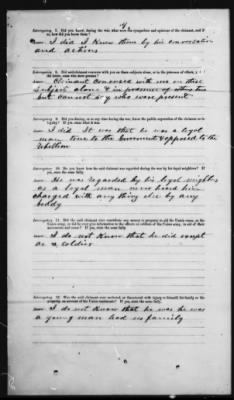 4
Interrogatory 7. Did you, during the war, know what were the sympathies and opinions of the claimant, and if so, how did you know them?
Ans — I did I knew them by his conversation
and actions
Interrogatory 8. Did said claimant converse with you on these subjects alone, or in the presence of others,
Ans — Claimant Conversed with me on these
subjects alone & in presence of others too
but cannot say who were present
Interrogatory 9. Did you, during or at any time during the war, know the public reputation of the claimant as to loyalty? If yes, state what it was.
Ans — I did It was that he was a loyal
man true to the Government & opposed to the
Rebellion
Interrogatory 10. Do you know how the said claimant was regarded during the war by his loyal neighbors? If yea, state the same fully.
Ans — He was regarded by his loyal neighbors
as a loyal man never heard him
charged with any thing else by any
body
Interrogatory 11. Did the said claimant ever contribute any money or property to aid the Union cause, or the
Ans — I do not know that he did except
as a soldier
Interrogatory 12. Was the said claimant ever molested, or threatened with injury to himself, his family or his property on account of his Union sentiments? If yea, state the same fully.
Ans — I do not know that he was he was
a young man had no family